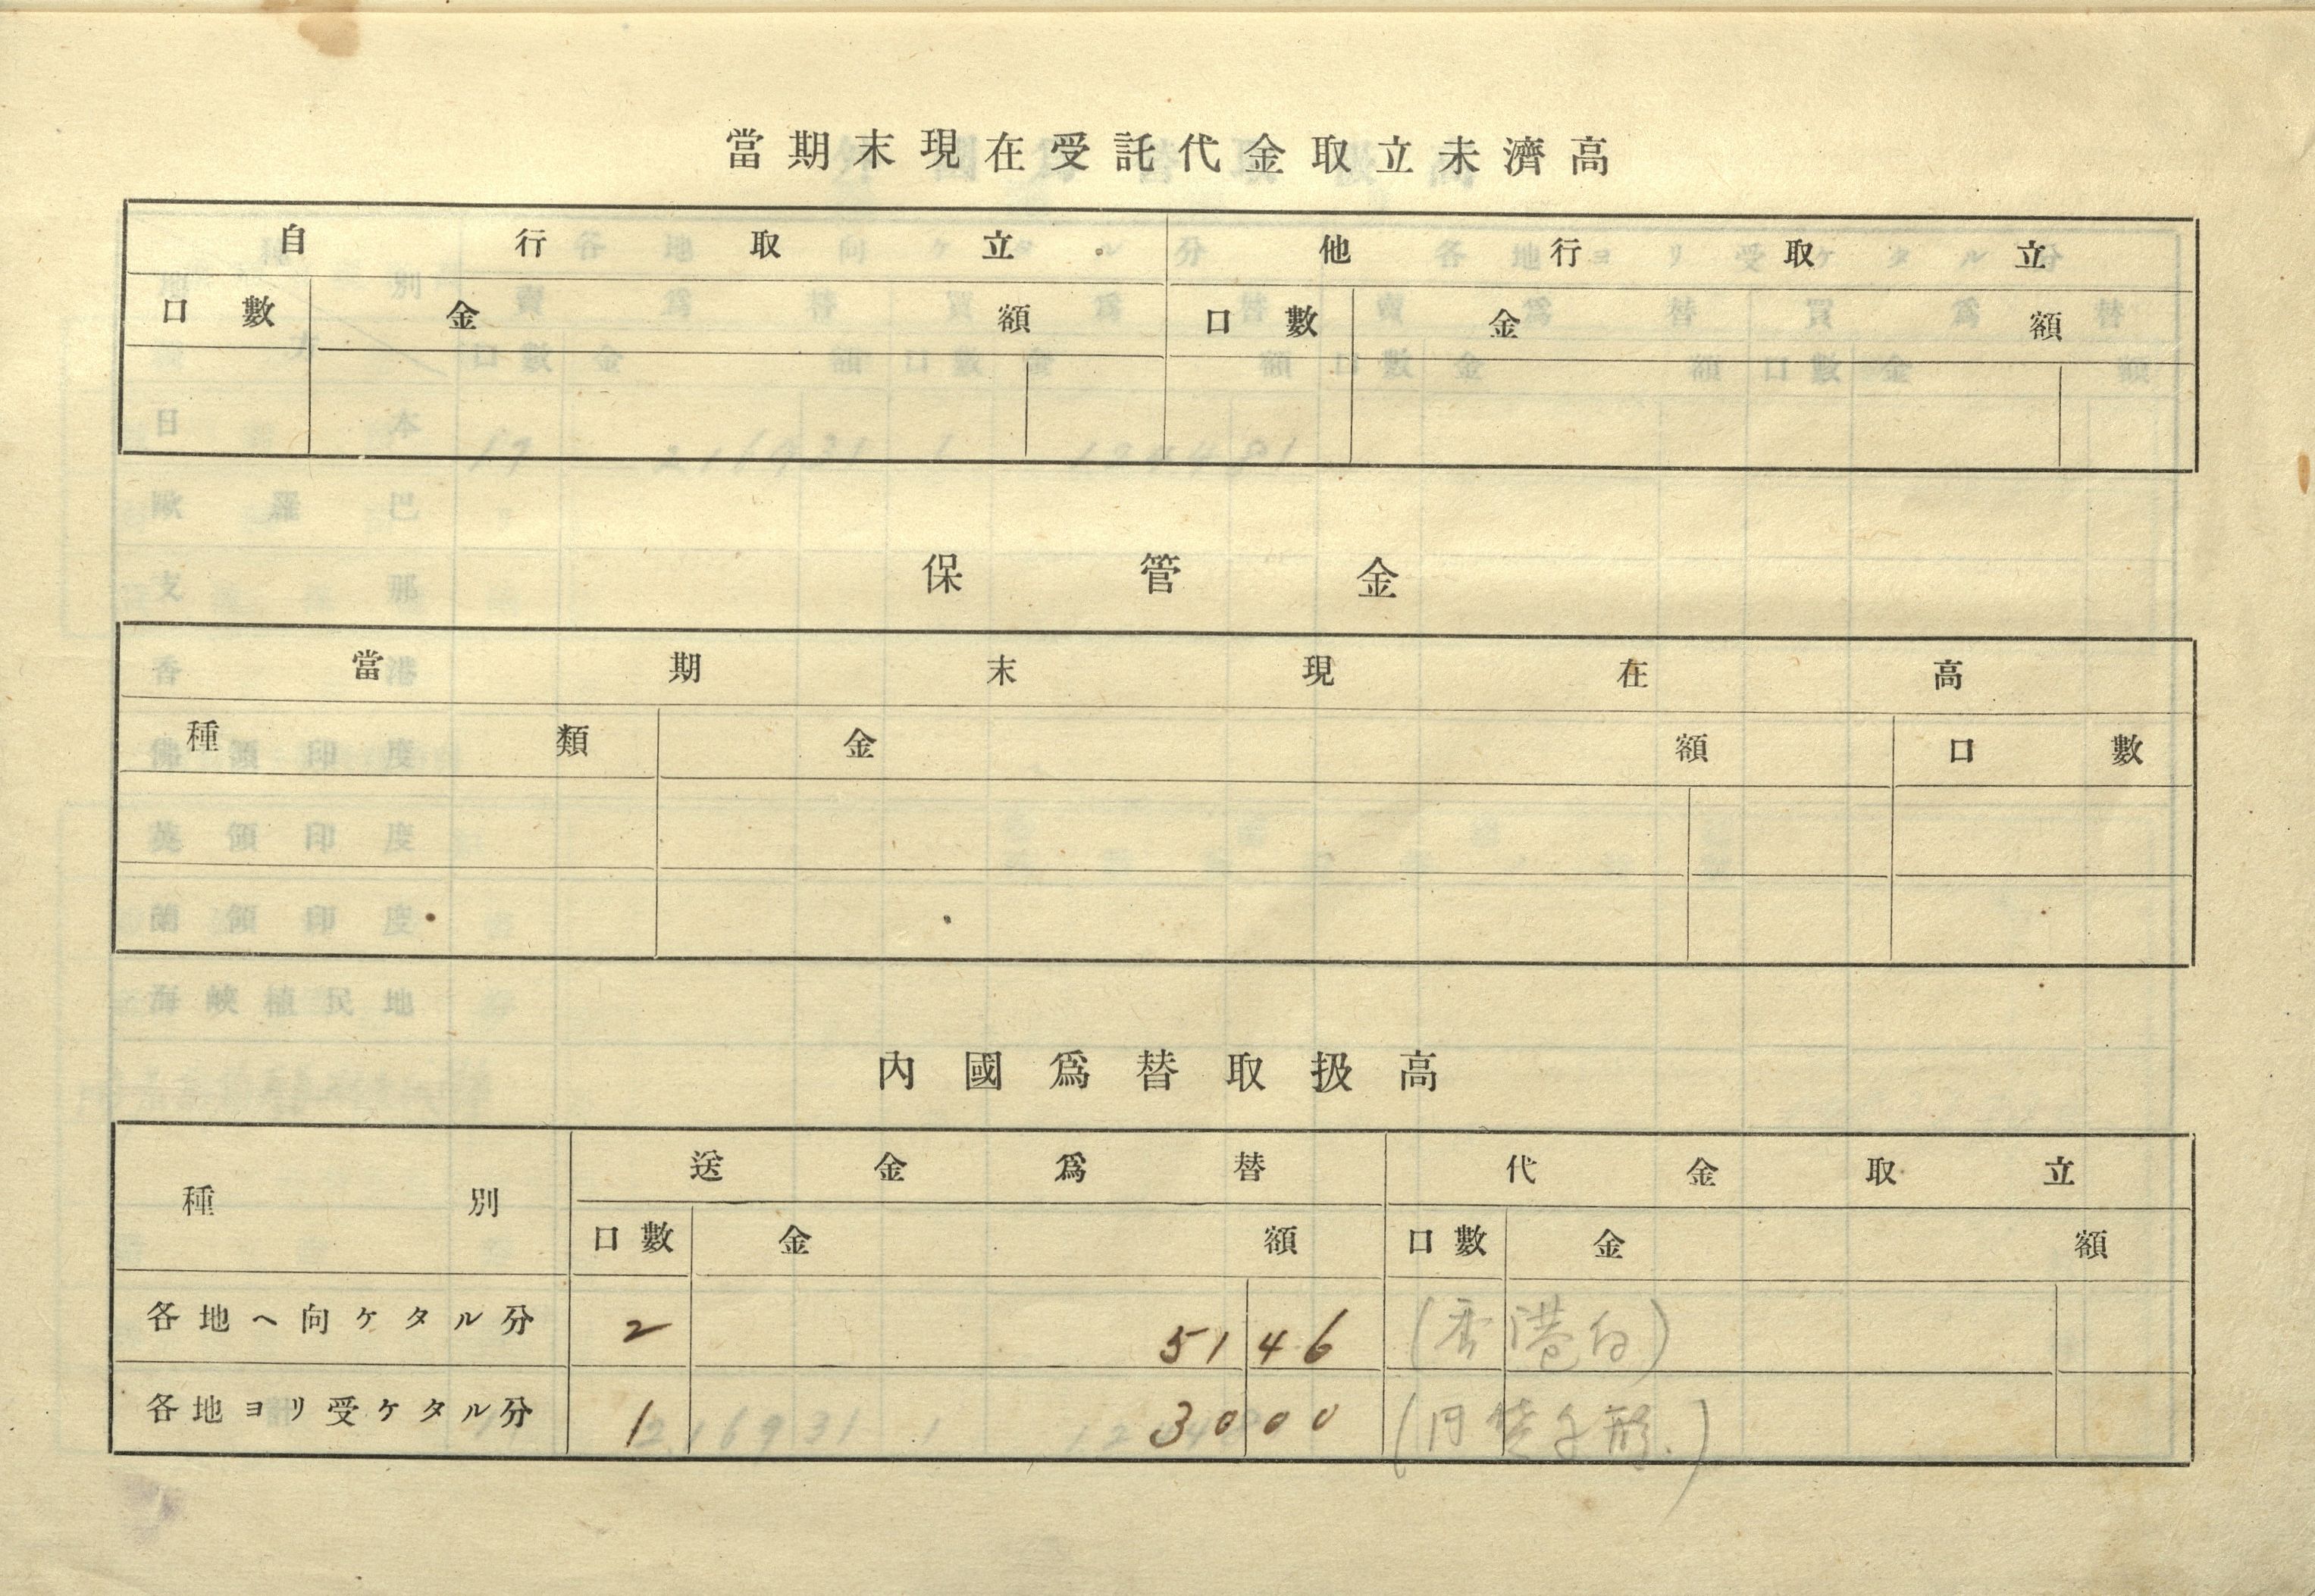 當期末現在受託代金取立未濟高
自行取立 他行取立
口數 金額 口數 金額
保管金
當期末現在高
種類 金額 口數
內國爲替取扱高
種別 送金爲替 代金取立
口數 金額 口數 金額
各地ヘ向ケタル分 2 51 46 (香港向)
各地ヨリ受ケタル分 1 30 00